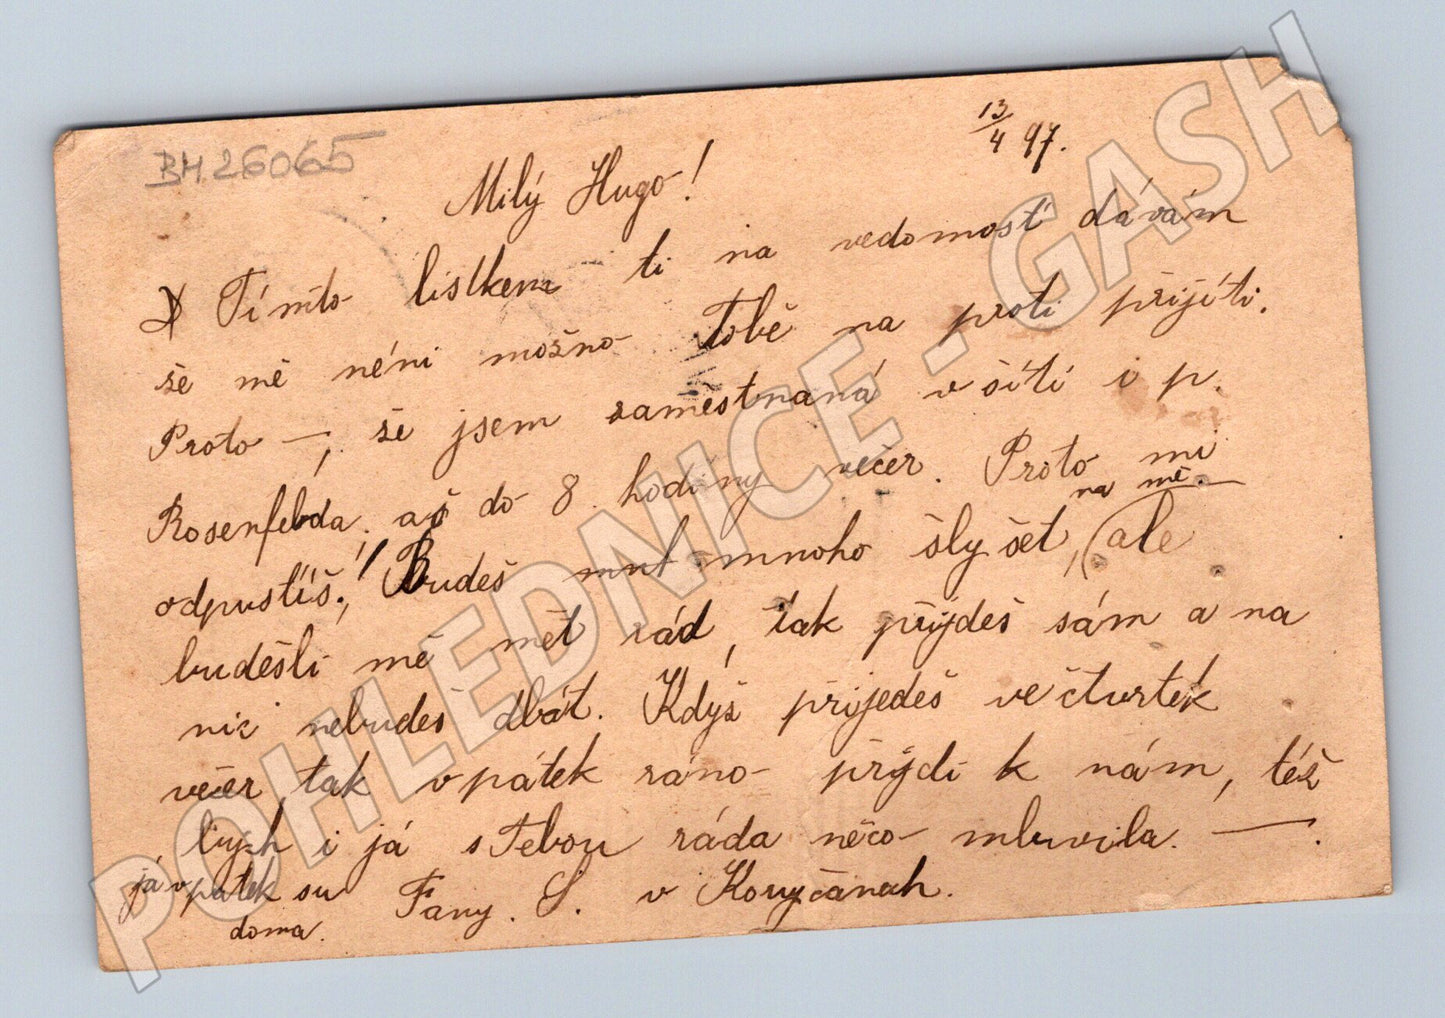 BH 26065
13/4 97.
Milý Hugo!
Tímto lístkem ti na vedomosť dávám
še mě néni možno Tobě na proti přijíti.
Proto —, še jsem zaměstnaná v šití i p.
Rosenfelda, aš do 8 hodiny večer. Proto mi
odpustíš! Budeš mnoho šlyšet, na mě. (ale
budešli mě mět rád, tak přijdeš sám a na
nic nebudeš dbát. Kdyš přijedeš ve čtvrtek
večer tak v pátek ráno přijdi k nám, též
bych i já s Tebou ráda něco mluvila. —.
já v patek su doma.
Fany. S. v Koryčanah.
POHLEDNICE - GASH